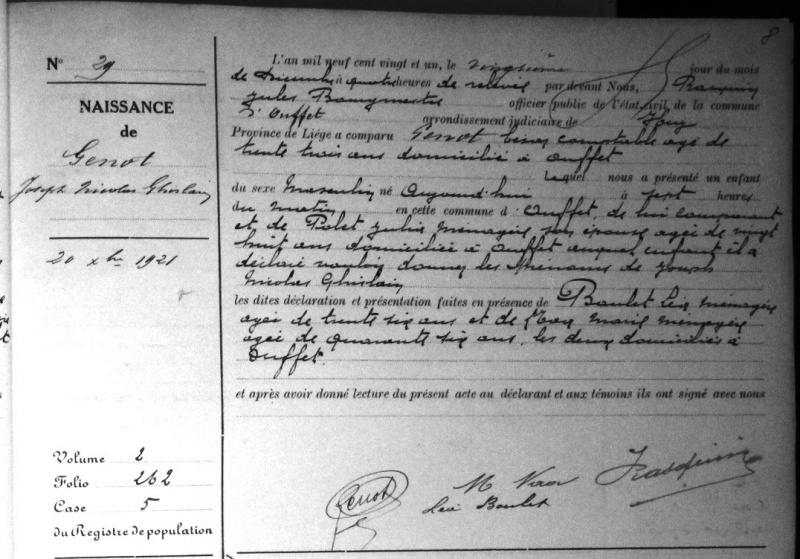 8
N° 29
NAISSANCE
de
Genot
Joseph Nicolas Ghislain
20 xbre 1921
Volume 2
Folio 262
Case 5
du Registre de population
L'an mil neuf cent vingt et un, le vingtième jour du mois
de Décembre à quatre heures de relevée par devant Nous,
Jules Bourgmestre officier public de l'état civil de la commune
d'Ouffet arrondissement judiciaire de Huy
Province de Liége a comparu Genot comptable agé de
trente trois ans domicilié à Ouffet
lequel nous a présenté un enfant
du sexe Masculin né Aujourd'hui à sept heures
du Matin en cette commune d'Ouffet, de lui comparant
et de Polet Julia Ménagère, son épouse agée de vingt
huit ans domiciliée à Ouffet auquel enfant il a
déclaré vouloir donner les Prénoms de Joseph
Nicolas Ghislain
les dites déclaration et présentation faites en présence de Boulet Léa Ménagère
agée de trente six ans et de Marie ménagère
agée de quarante six ans, les deux domiciliées à
Ouffet.
et après avoir donné lecture du présent acte au déclarant et aux témoins ils ont signé avec nous
Genot
M
Léa Boulet